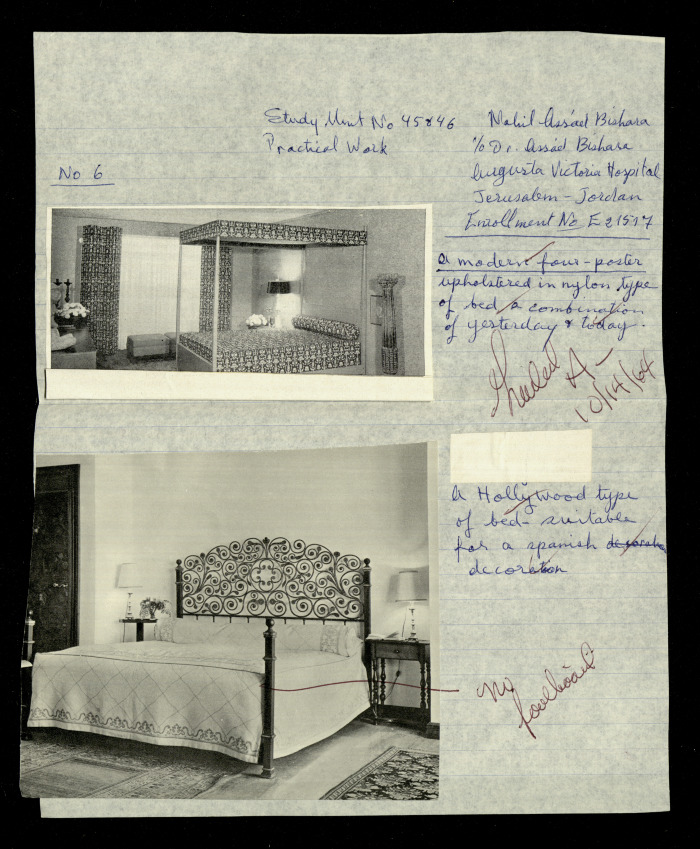 Study Unit No 45 & 46
Practical Work
Nabil Assa'd Bishara
c/o Dr. Assa'd Bishara
Augusta Victoria Hospital
Jerusalem - Jordan
Enrollment No E 21517
No 6
A modern four-poster
upholstered in nylon type
of bed a combination
of yesterday & today.
A-
10/14/64
A Hollywood type
of bed - suitable
for a spanish
decoration
No
footboard